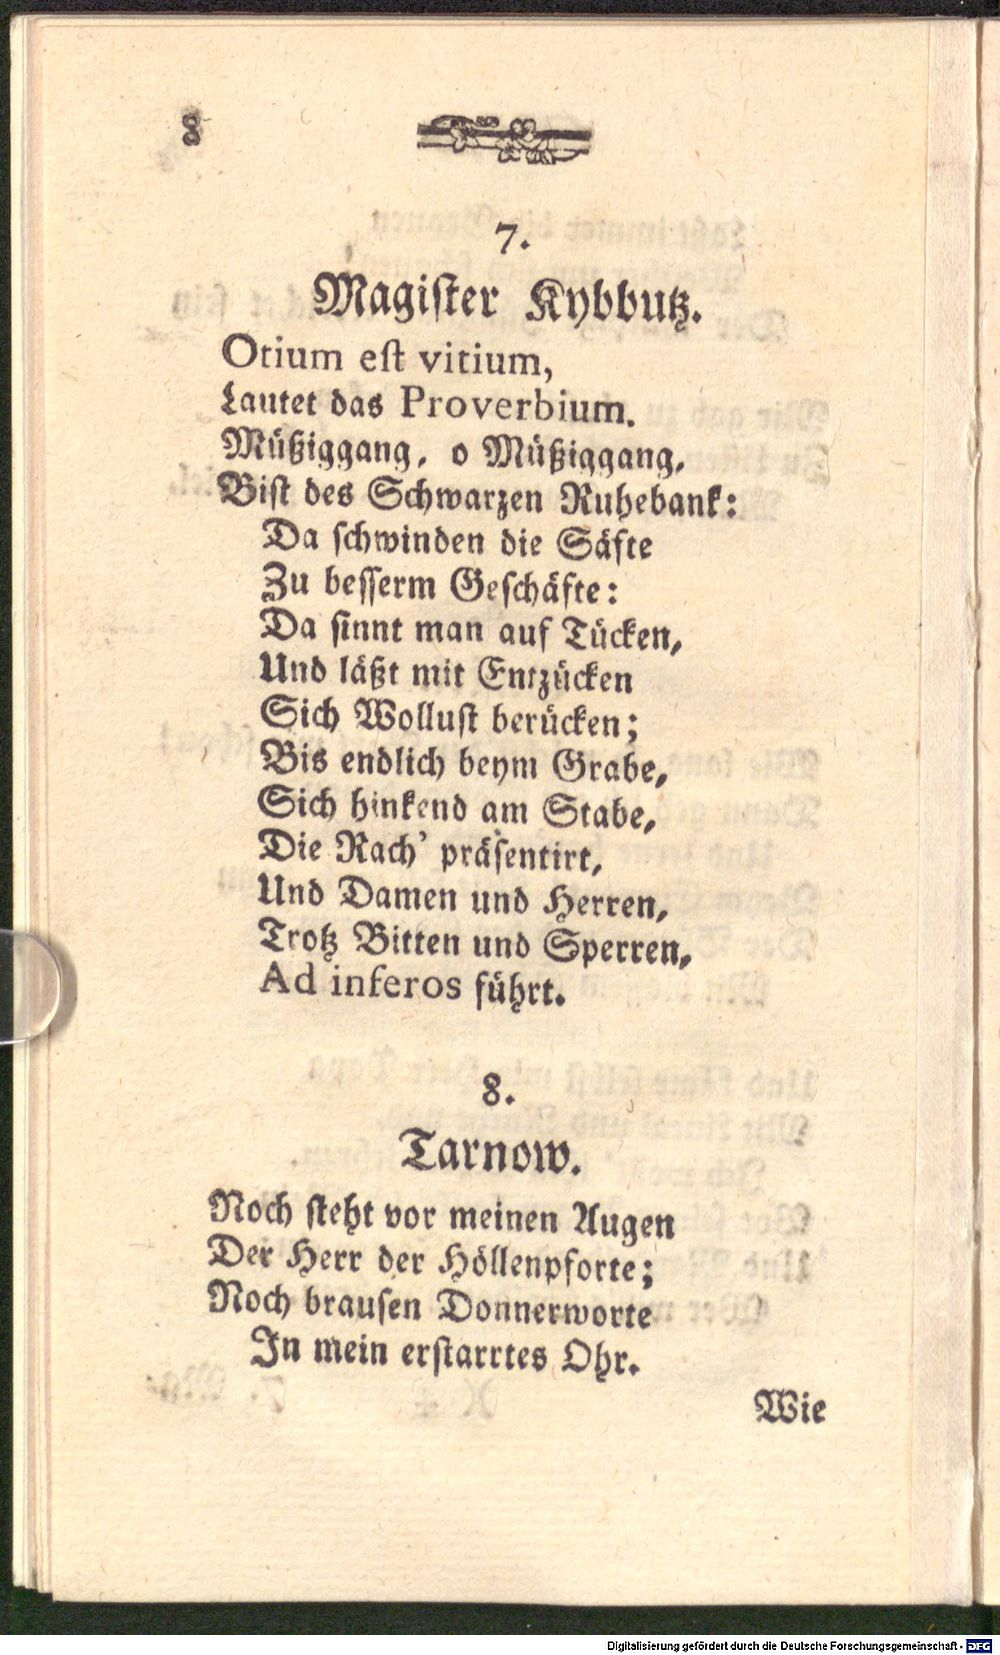 8
7.
Magister Kybbutz.
Otium est vitium,
Lautet das Proverbium.
Müßiggang, o Müßiggang,
Bist des Schwarzen Ruhebank:
Da schwinden die Säfte
Zu besserm Geschäfte:
Da sinnt man auf Tücken,
Und läßt mit Entzücken
Sich Wollust berücken;
Bis endlich beym Grabe,
Sich hinkend am Stabe,
Die Rach' präsentirt,
Und Damen und Herren,
Trotz Bitten und Sperren,
Ad inferos führt.
8.
Tarnow.
Noch steht vor meinen Augen
Der Herr der Höllenpforte;
Noch brausen Donnerworte
In mein erstarrtes Ohr.
Wie
Digitalisierung gefördert durch die Deutsche Forschungsgemeinschaft - DFG